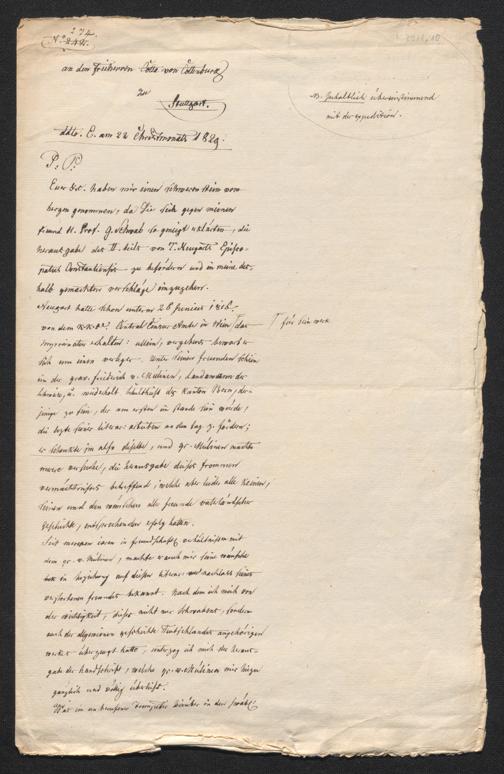 274.
N.° 244.
an den Freiherren Cotta von Cottendorf
zu
Stuttgart.
ddto. E. am 22 Christmonats 1829.
NB. Inhaltlich übereinstimmend
mit der expedition.
P. P.
Euer &c. haben mir einen schweren stein vom
herzen genommen, da Sie sich gegen meinen
freund H. Prof. G. Schwab so geneigt erklärten, die
herausgabe des II. theils von T. Neugarts Episco-
patus Constantiensis zu befördern und in meine des-
halb gemachten vorschläge einzugehen.
Neugart hatte schon unterm 26
von dem k.k. Central Censur Amte in Wien das
für sein werk
imprimatur erhalten: allein, vergebens bewarb er
sich um einen verleger. Unter seinen freunden schien
ein der grav. Friederich v. Mülinen, 
schweiz, u. Schultheiß des Kanton Bern, der-
jenige zu sein, der am ersten im stande sein würde,
die lezte seiner literar. arbeiten an den tag z. fördern;
er schenkte im also dieselbe, und gr. Mülinen machte
merere versuche, die herausgabe dieses frommen
vermächtnisses betreffend, welche aber leider alle keinen,
seinen und den wünschen aller freunde vaterländischer
geschichte, entsprechenden erfolg hatten.
Seit mereren iaren in freundschaftl. verhältnissen mit
dem gr. v. Mülinen, machte er auch mir seine wünsche
in beziehung auf diesen literar. nachlass seines
verstorbenen freundes bekannt. Nach dem ich mich von
der wichtigkeit, dieses nicht nur Schwabens, sondern
auch der allgemeinen geschichte Teutschlandes angehörigen
werkes überzeugt hatte, unterzog ich mich der heraus-
gabe der handschrift, welche gr. v. Mülinen mir
gänzlich und völlig überließ.
Was ein an berufener hierüber in den